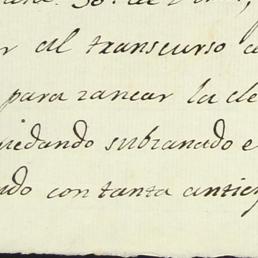 al transcurso
para zanear la
quedando subsanado e
ndo con tanta antici